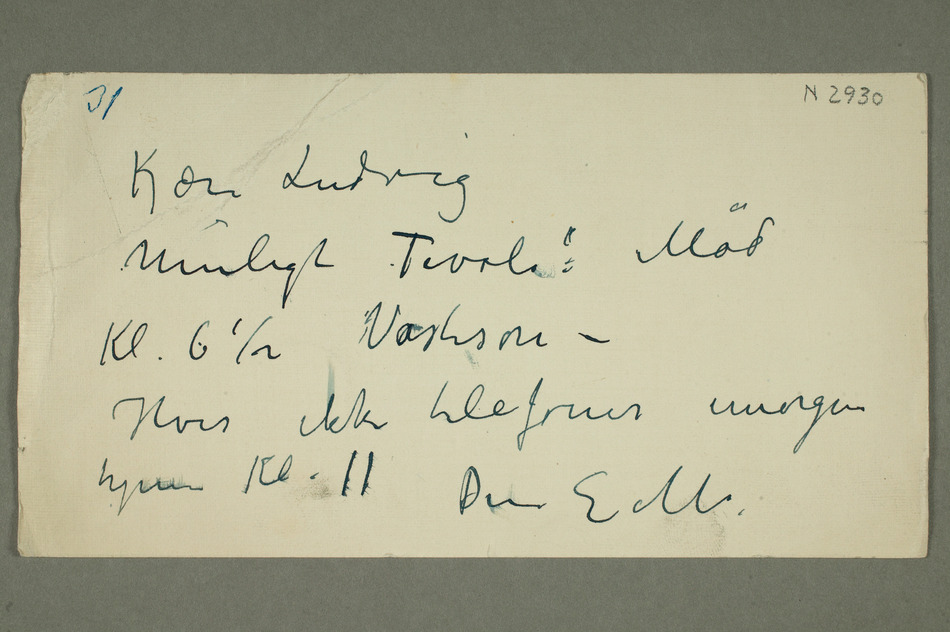 31
N 2930
Kjære Ludvig
Muligt Tivoli: Mød
Kl. 6 1/2
Hvis ikke telefoner imorgen
Kl. 11 Din E M.